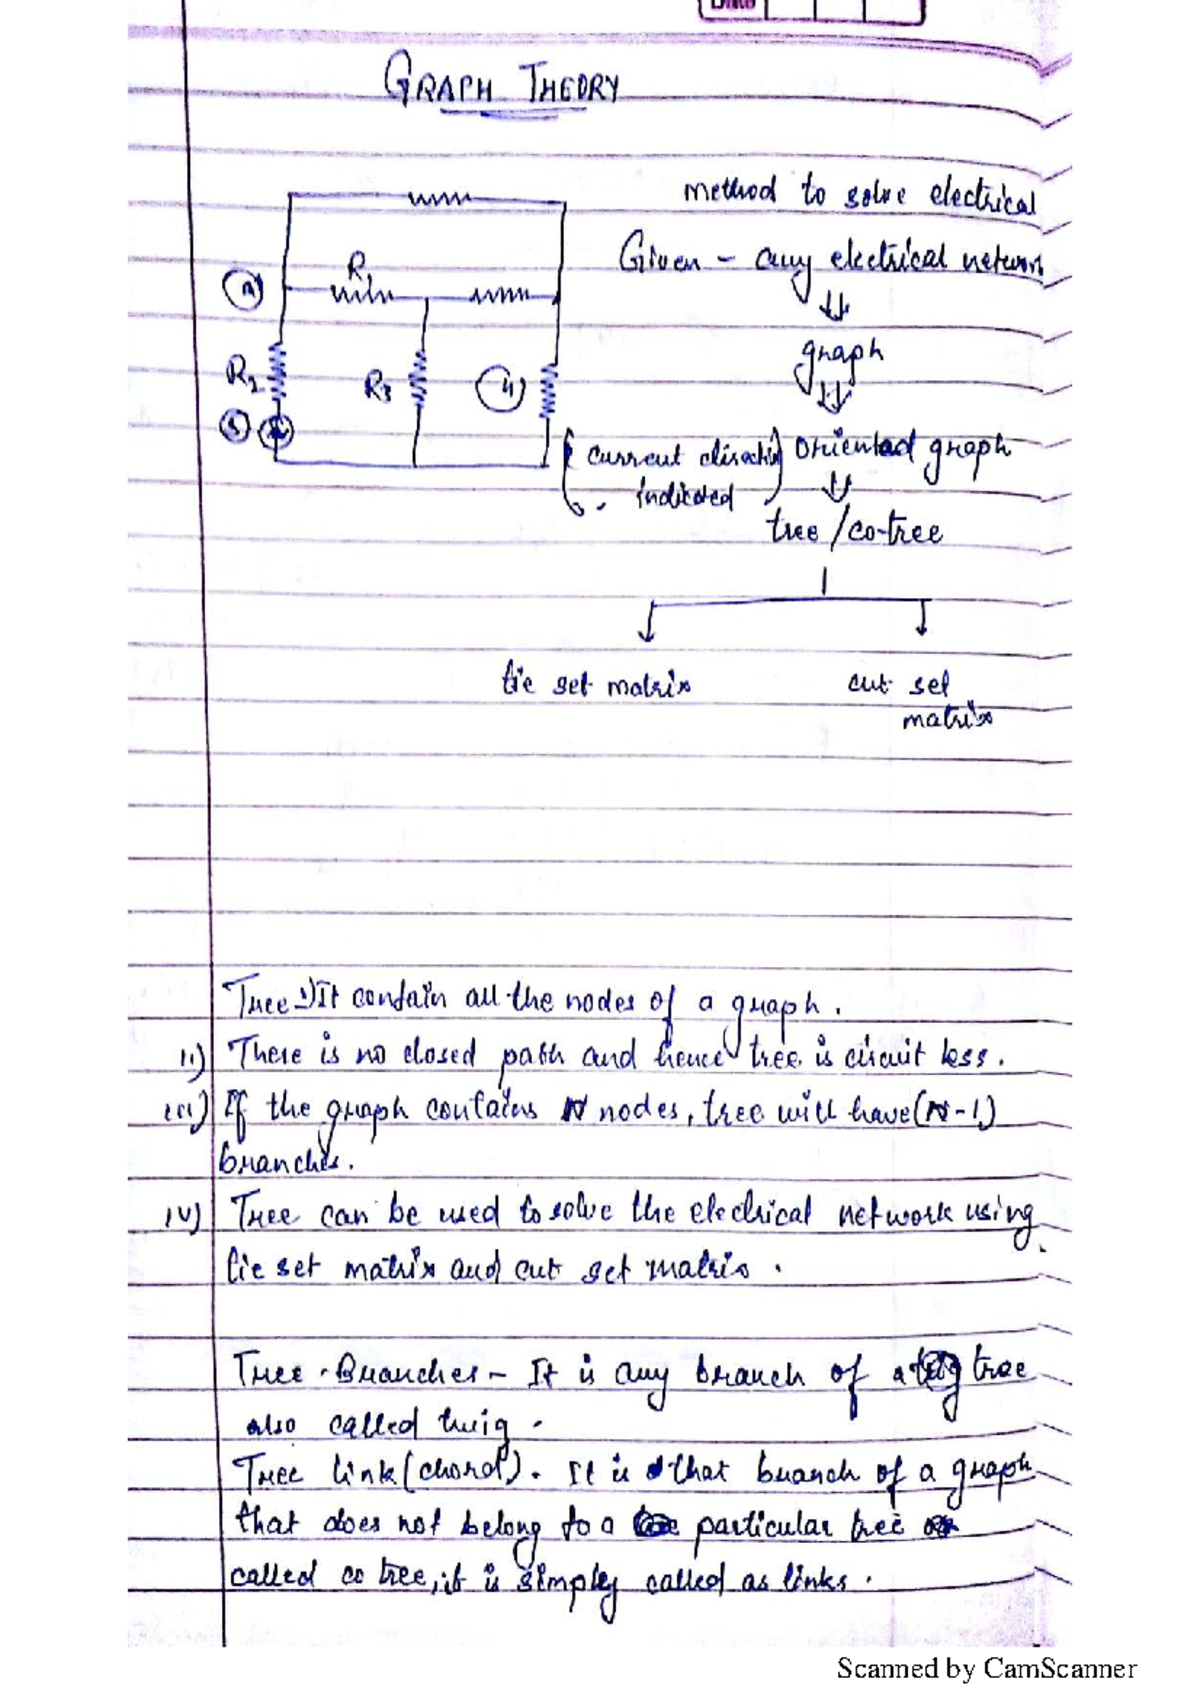 Date
GRAPH THEORY
method to solve electrical
Given - any electrical network
graph
(current direction indicated) oriented graph
tree/co-tree
tie set matrix
cut set
matrix
R1
R2
R3
4
5
Tree i) It contain all the nodes of a graph.
ii) There is no closed path and hence tree is circuit less.
iii) If the graph contains N nodes, tree will have (N-1)
branches.
iv) Tree can be used to solve the electrical network using
tie set matrix and cut set matrix.
Tree Branches - It is any branch of a tree
also called twig.
Tree link (chord). It is that branch of a graph
that does not belong to a particular tree
called co tree, it is simply called as links.
Scanned by CamScanner